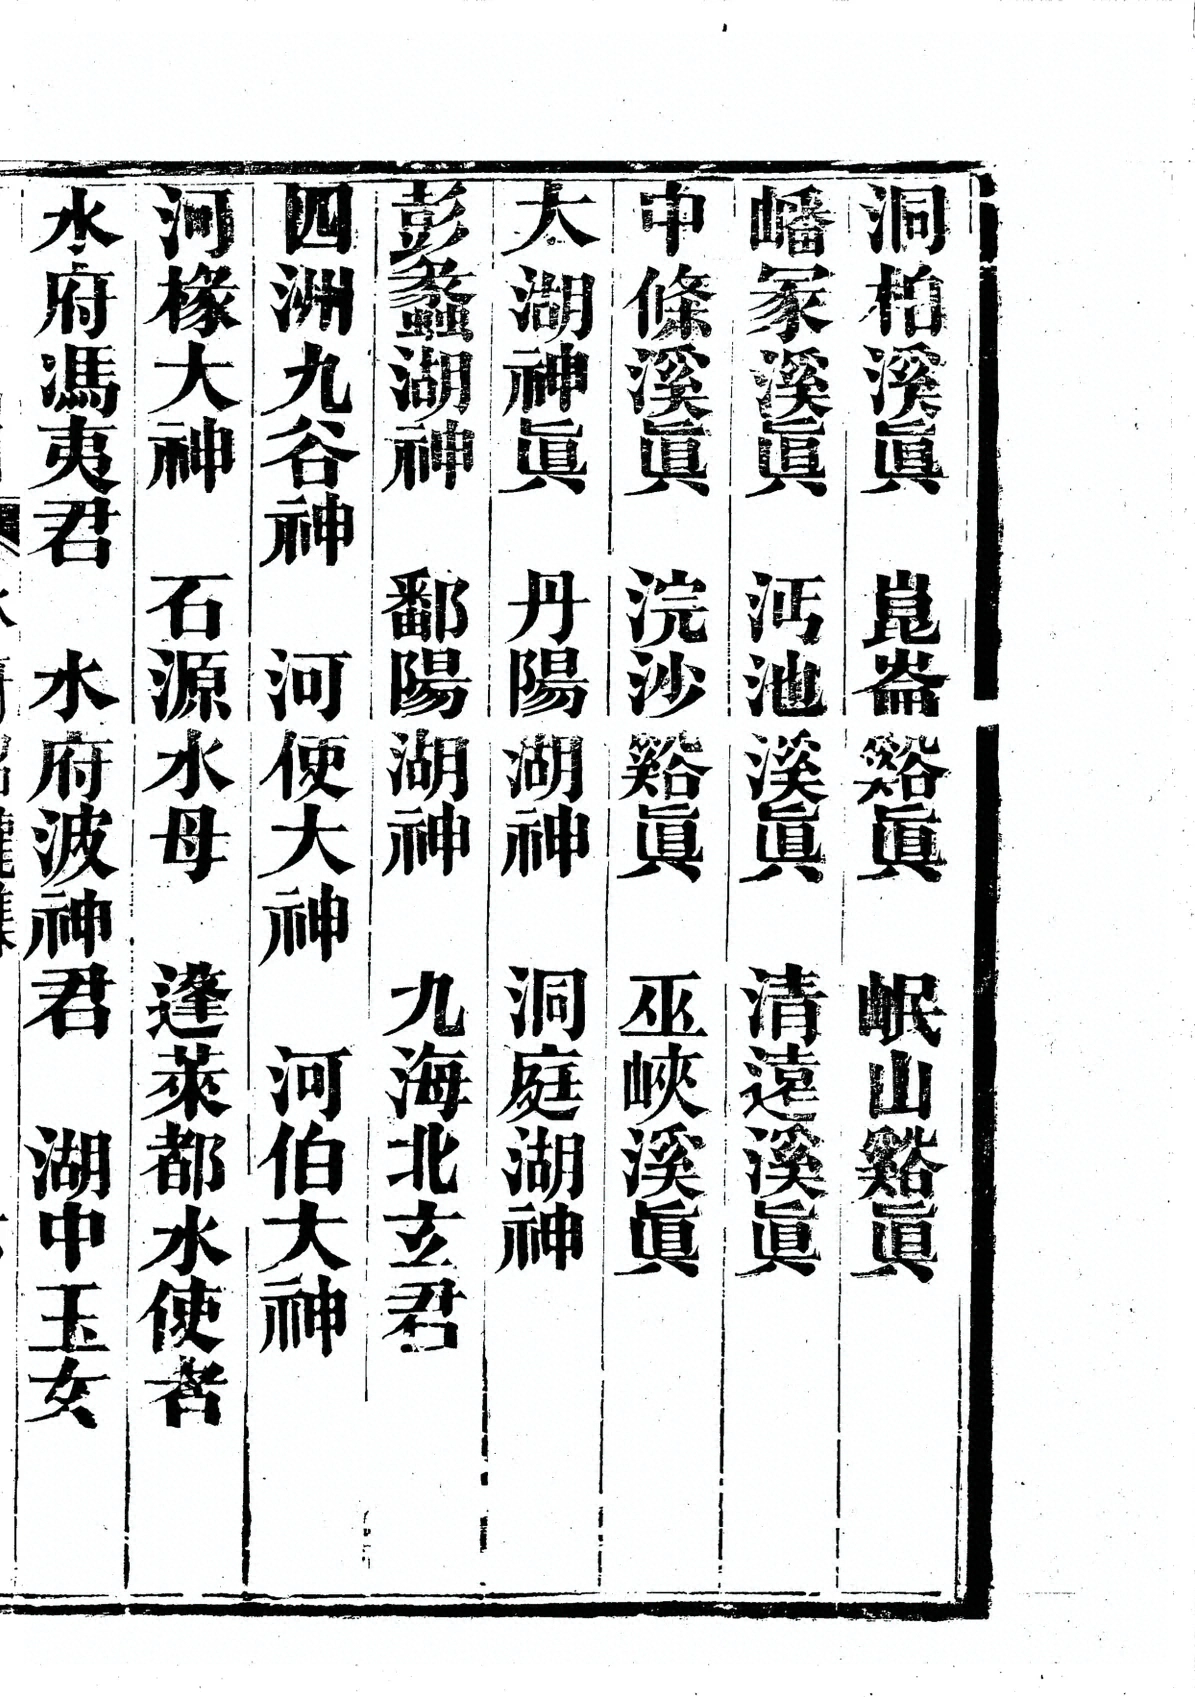 洞柏溪眞　崑崙谿眞　岷山谿眞
嶓冢溪眞　沔池溪眞　清遠溪眞
中條溪眞　浣沙谿眞　巫峽溪眞
大湖神眞　丹陽湖神　洞庭湖神
彭蠡湖神　鄱陽湖神　九海北玄君
四洲九谷神　河使大神　河伯大神
河椽大神　石源水母　逢萊都水使者
水府馮夷君　水府波神君　湖中玉女